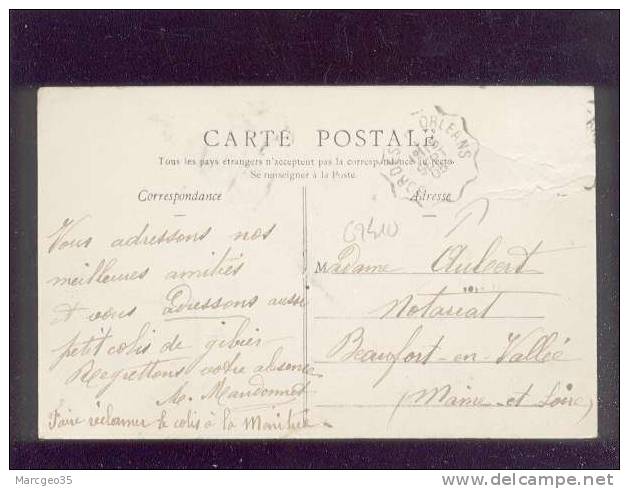 CARTE POSTALE
Tous les pays étrangers n'acceptent pas la correspondance au recto.
Se renseigner à la Poste.
Correspondance
Adresse
ORLEANS
69410
Vous adressons nos
meilleures amitiés
et vous adressons aussi
petit colis de gibier
Regrettons votre absence
M. Mandonnet
Faire réclamer le colis à la
Madame Aubert
Notariat
Beaufort-en-Vallée
(Maine-et-Loire)
Marcgeo35
www.delcampe.net